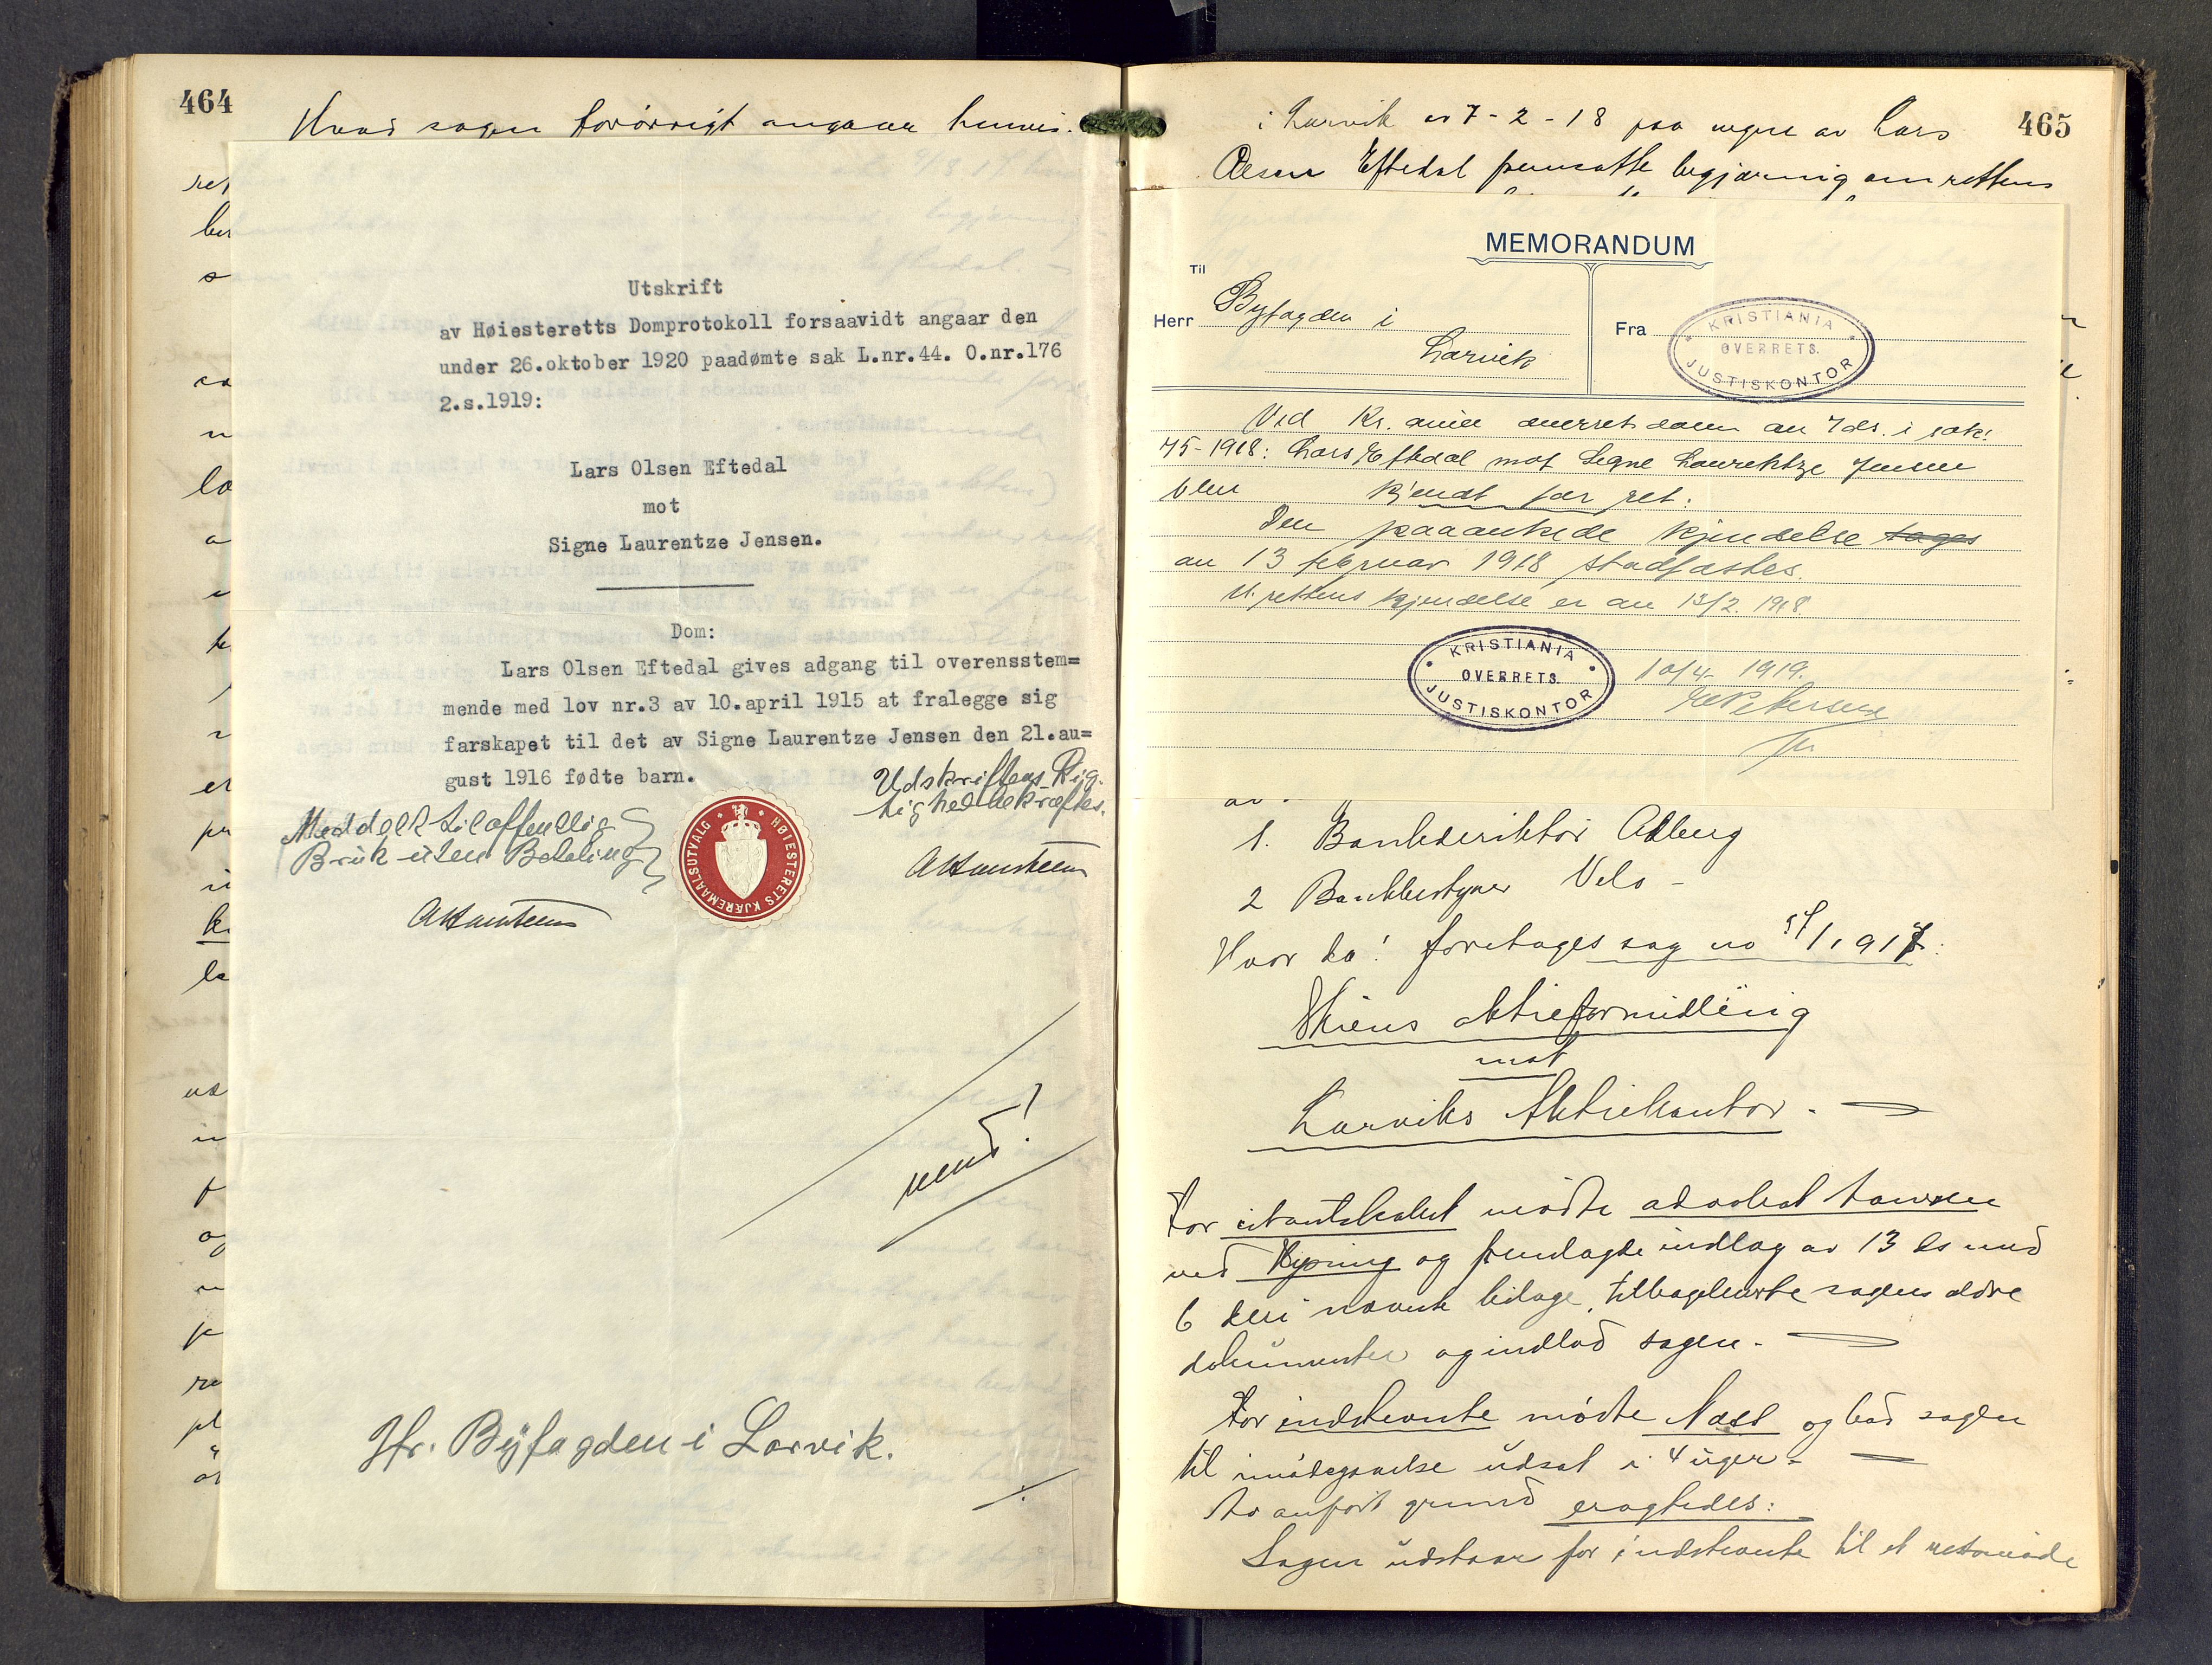 464
Hvad sagen forøvrigt angaar henvis.
Utskrift
av Høiesteretts Domprotokoll forsaavidt angaar den
under 26.oktober 1920 paadømte sak L.nr.44. O.nr.176
2.s.1919:
Lars Olsen Eftedal
mot
Signe Laurentze Jensen.
Dom:
Lars Olsen Eftedal gives adgang til overensstem=
mende med lov nr.3 av 10.april 1915 at fralegge sig
farskapet til det av Signe Laurentze Jensen den 21.au=
gust 1916 fødte barn.
Udskriftens Rig-
tighed bekræftes.
Meddelt til offentlig
Bruk uten Betaling
HØIESTERETS KJÆREMAALSUTVALG
vend!
Hr. Byfogden i Larvik.
465
i Larvik av 7-2-18 paa vegne av Lars
Olsen Eftedal fremsatte begjæring om rettens
MEMORANDUM
Til
Herr Byfogden i
Larvik
Fra
KRISTIANIA
OVERRETS.
JUSTISKONTOR
Ved Kr.ania overrets dom av 7 ds. i sak:
75-1918: Lars Eftedal mot Signe Laurentze Jensen
blev kjendt for ret:
Den paaankede kjendelse tages
av 13 februar 1918 stadfæstes.
U.rettens kjendelse er av 13/2. 1918
KRISTIANIA
OVERRETS.
JUSTISKONTOR
10/4 1919.
1. Bankdirektør
2 Bankbestyrer
Hvor da! foretages sag no 57/1917:
Skiens aktieformidling
mot
Larviks Aktiekontor.
For citantskabet mødte advokat
ved og fremlagde indlæg av 13 ds med
6 deri nævnte bilage, tilbageleverte sagens ældre
dokumenter og indlod sagen.
For indstevnte mødte Næss og bad sagen
til imødegaaelse udsat i 4 uger.
Av anført grund eragtedes:
Sagen udstaar for indstevnte til et retsmøde